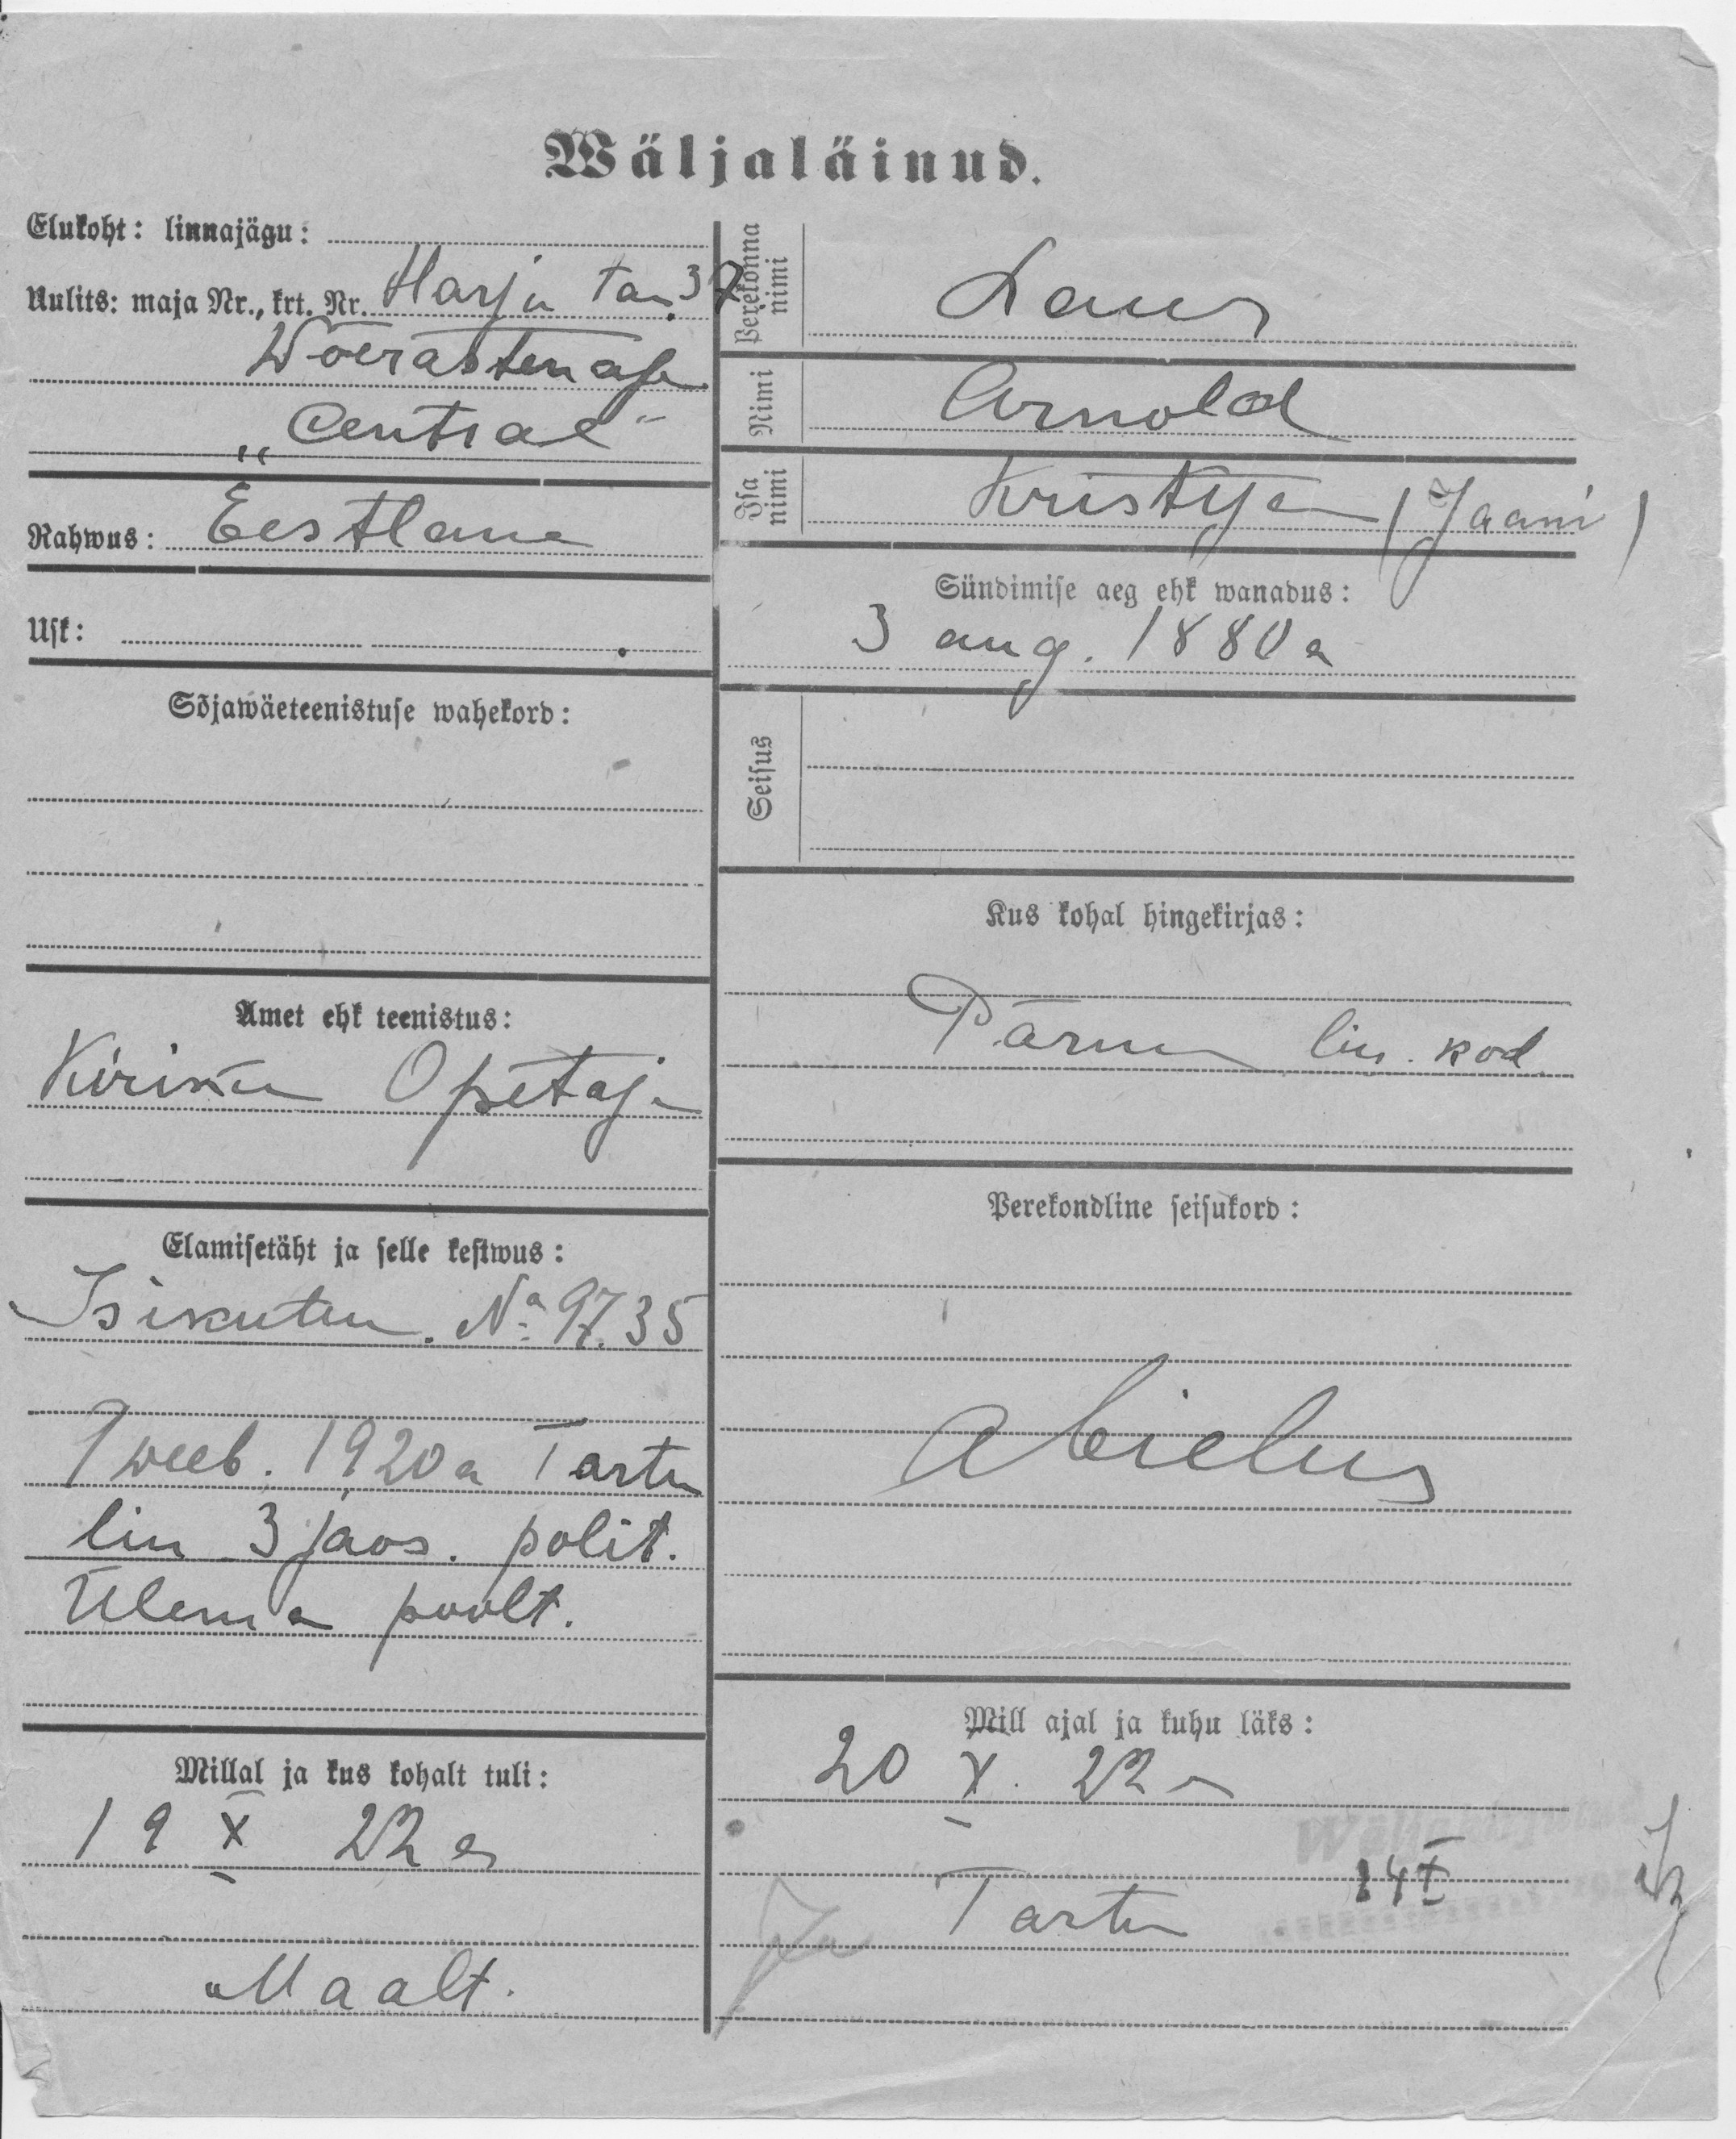 Wäljaläinud.
Elukoht: linnajägu:
Uulits: maja Nr., krt. Nr. Harju tan. 37
Wõerastemaja
„Central“
Rahwus: Eestlane
Usk:
Sõjawäeteenistuse wahekord:
Amet ehk teenistus:
Kiriku Õpetaja
Elamisetäht ja selle kestwus:
Isikutun. No 9735
9 weeb. 1920 a Tartu
lin 3 jaos. polit.
Ülema poolt.
Millal ja kus kohalt tuli:
19 X 22 a
Maalt.
Perekonna nimi
Laur
Nimi Arnold
Isa nimi Kristjan (Jaani)
Sündimise aeg ehk wanadus:
3 aug. 1880 a
Seisus
Kus kohal hingekirjas:
Pärnu lin. kod.
Perekondline seisukord:
Abielus
Mill ajal ja kuhu läks:
20 X. 22 a
14 X
Tartu